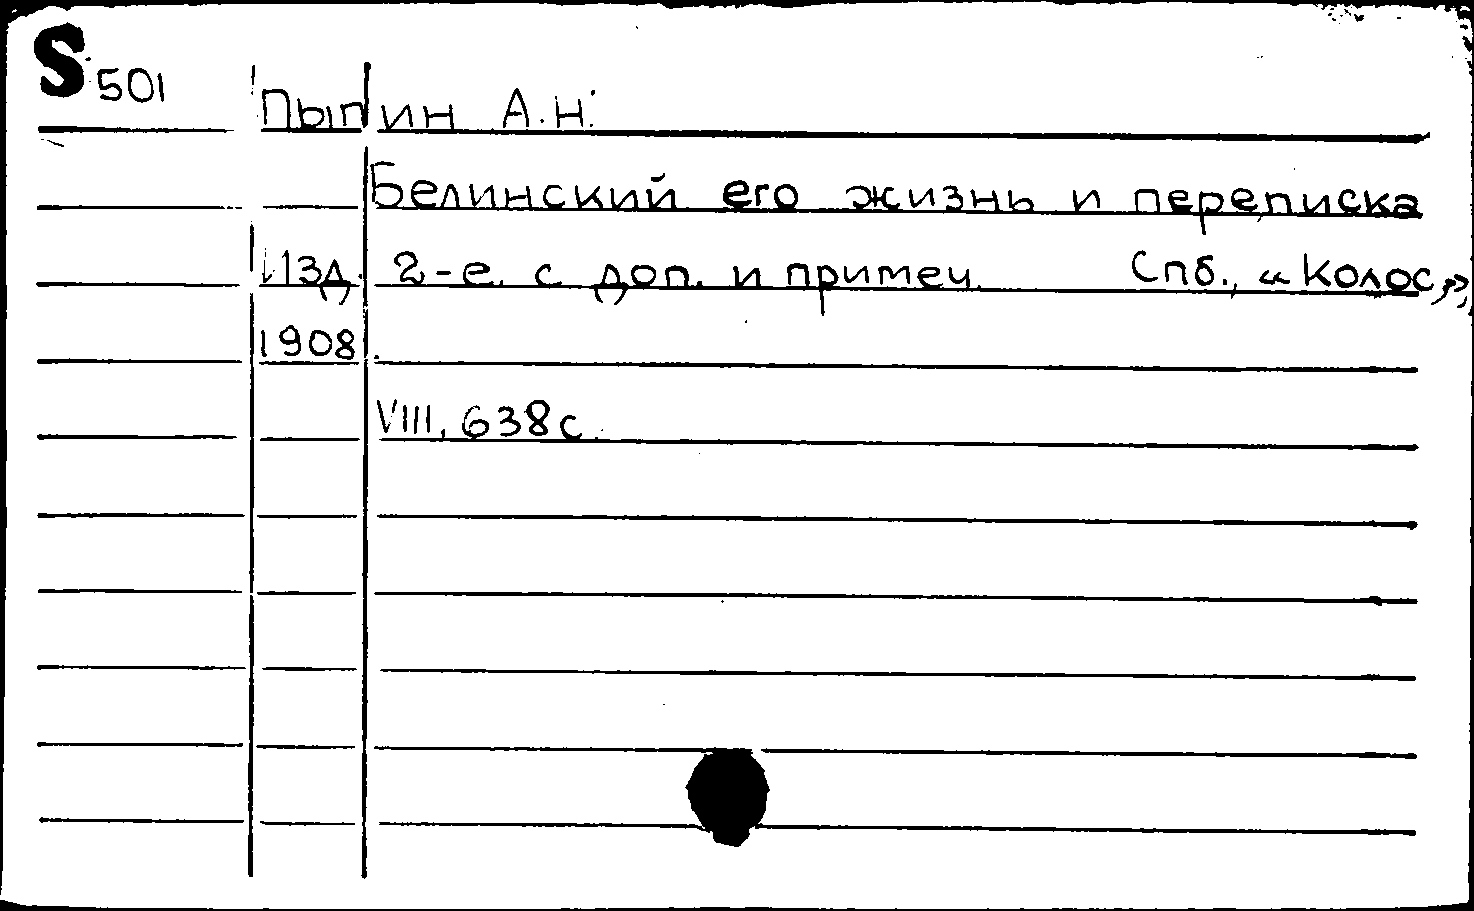 S 501
Пыпин А.Н.
Белинский его жизнь и переписка
Изд. 2-е. с доп. и примеч. Спб., «Колос»,
1908.
VIII, 638 с.